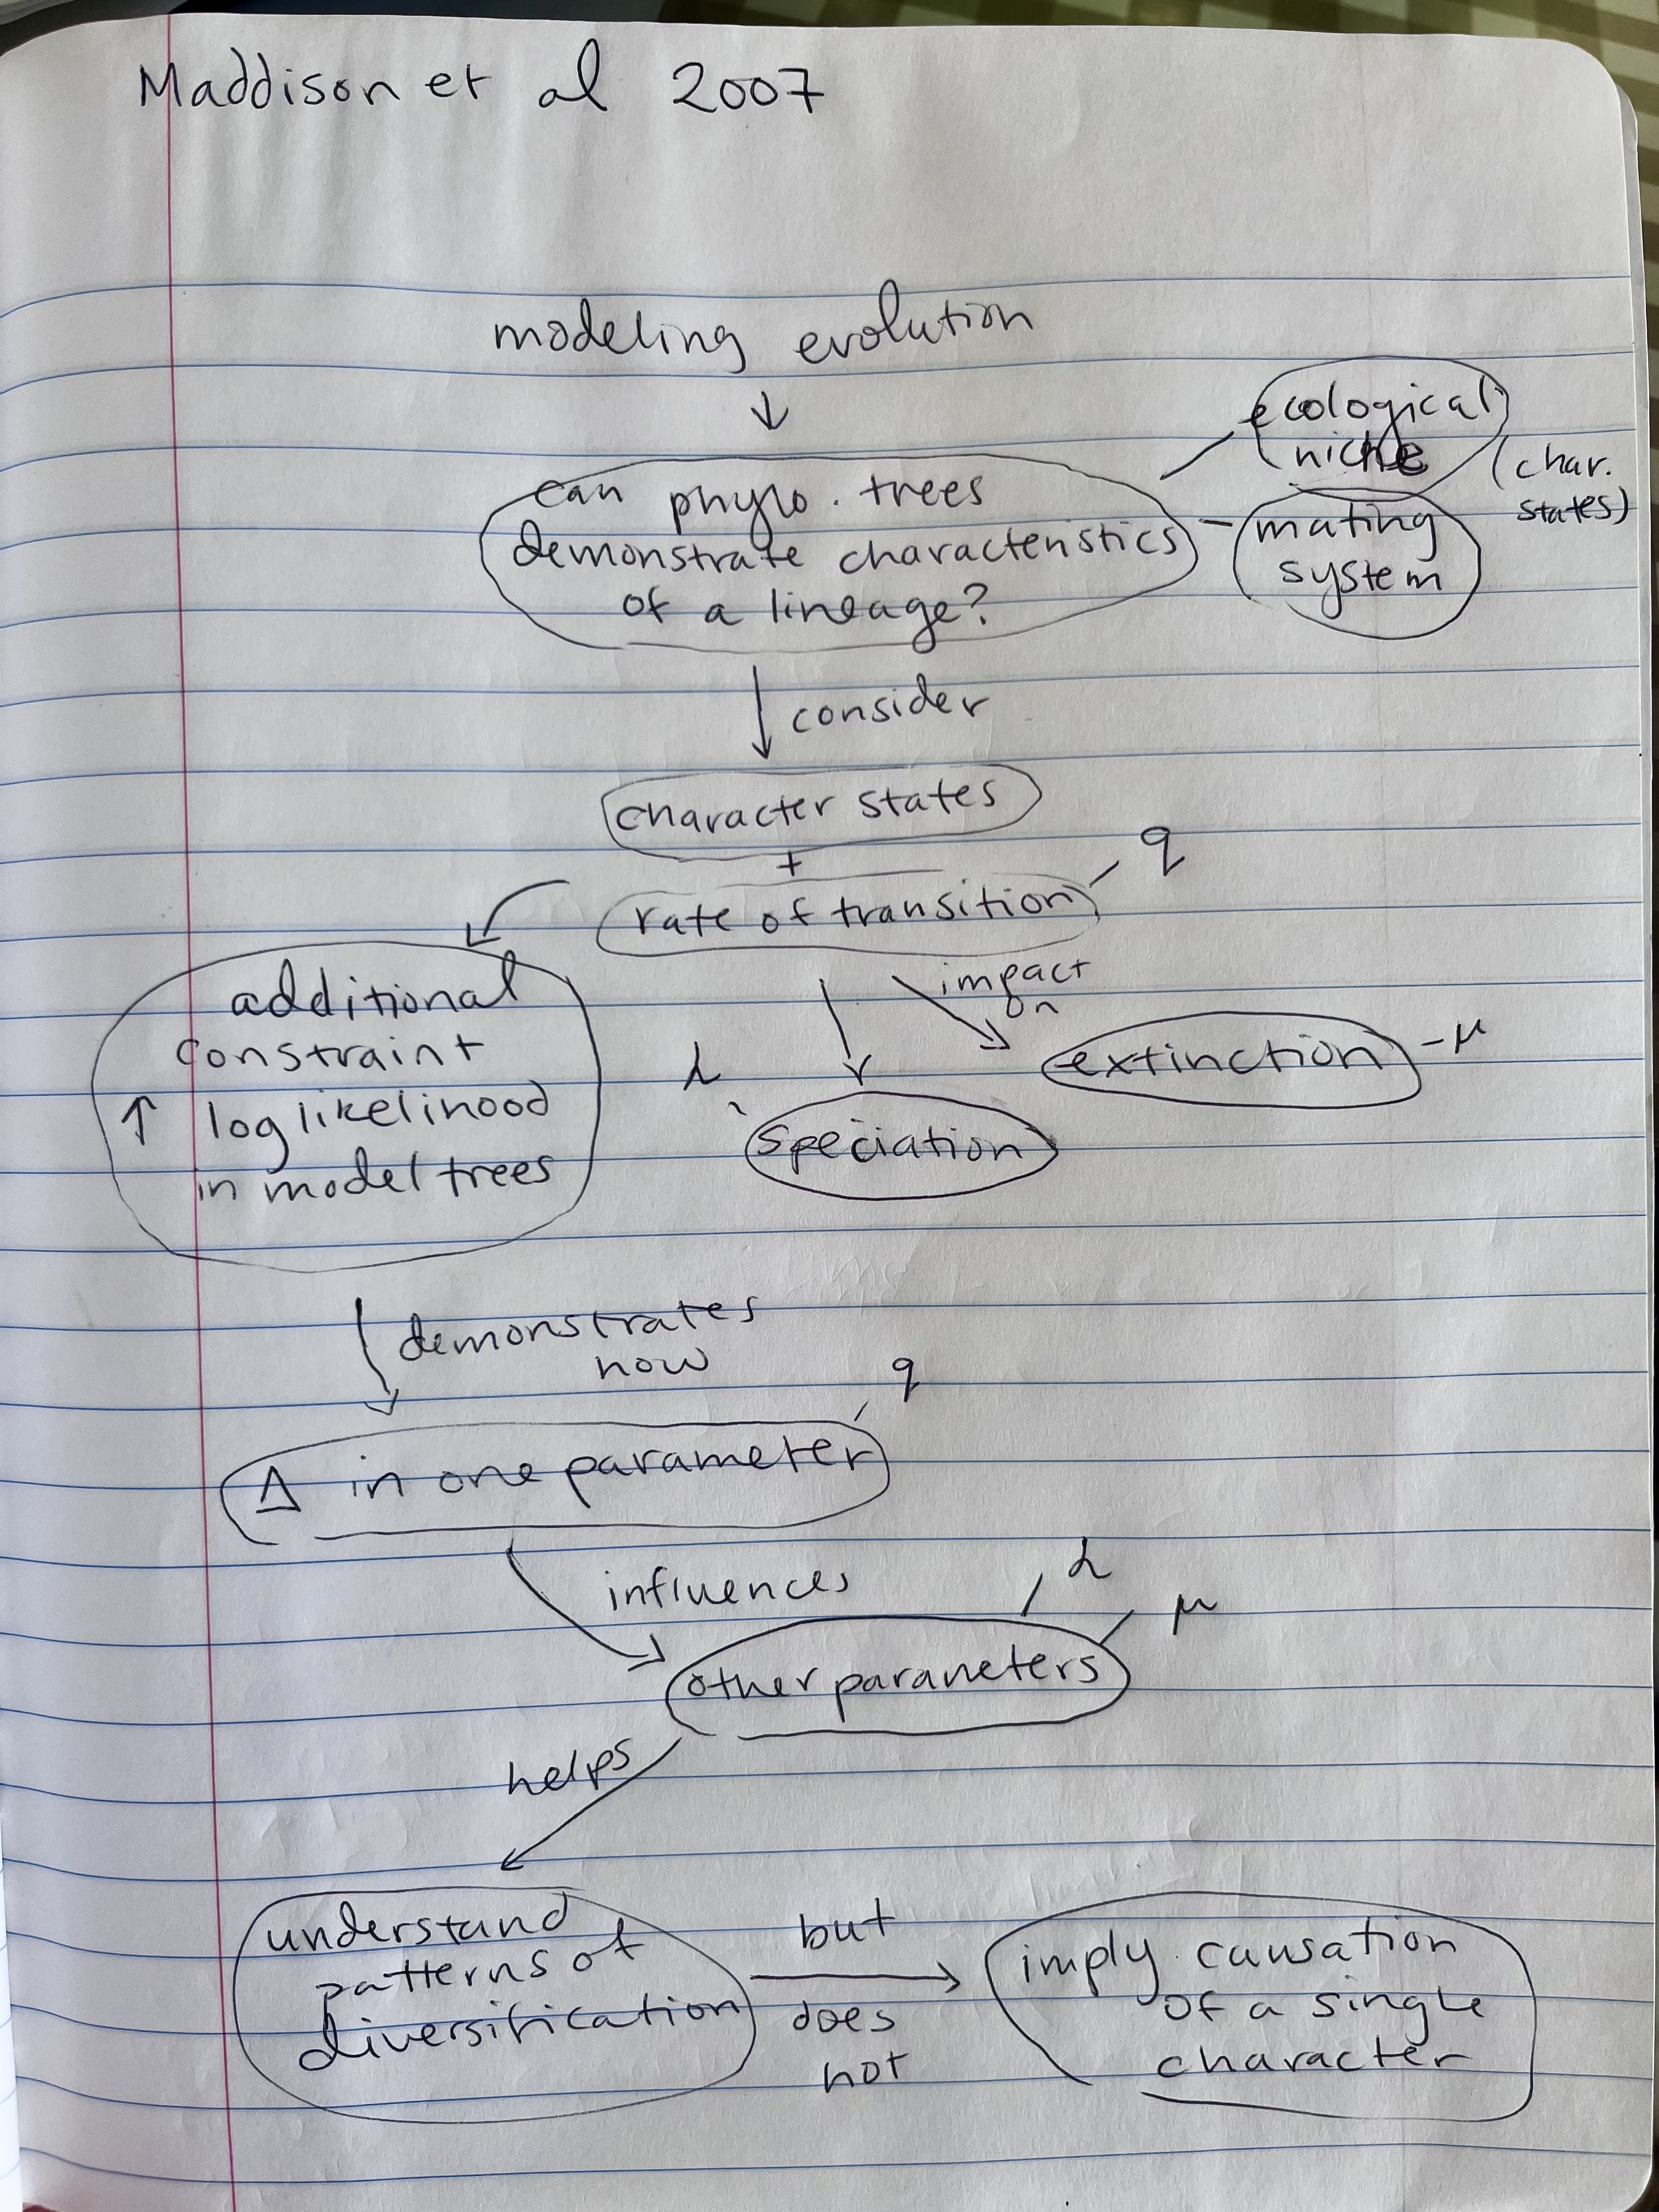 Maddison et al 2007
modeling evolution
↓
can phylo. trees
demonstrate characteristics
of a lineage?
ecological
niche
(char.
states)
mating
system
consider
character states
+
rate of transition
q
additional
constraint
↑ log likelihood
in model trees
impact
on
extinction - μ
λ
speciation
demonstrates
how
q
Δ in one parameter
influences
λ
μ
other parameters
helps
understand
patterns of
diversification
but
does
not
imply causation
of a single
character